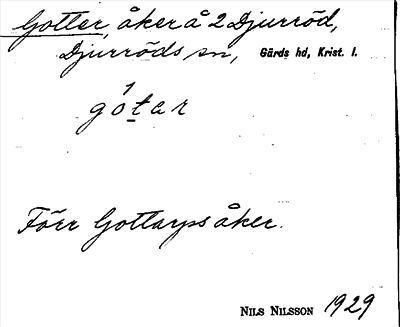 Gotter, åker å 2 Djurröd,
Djurröds sn, Gärds hd, Krist. l.
gótar
Förr Gottarps åker.
NILS NILSSON 1929